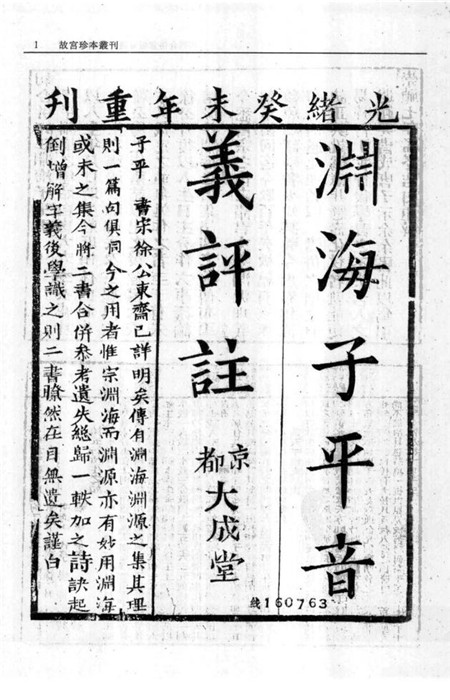 1 故宮珍本叢刊
光緒癸未年重刊
淵海子平音
義評註
京都大成堂
子平 書宋徐公東齋已詳明矣傳有淵海淵源之集其理
則一篇句俱同今之用者惟宗淵海而淵源亦有妙用淵海
或未之集今將二書合併參考遺失總歸一帙加之詩訣起
倒增解字義後學識之則二書瞭然在目無遺矣謹白
兓160763